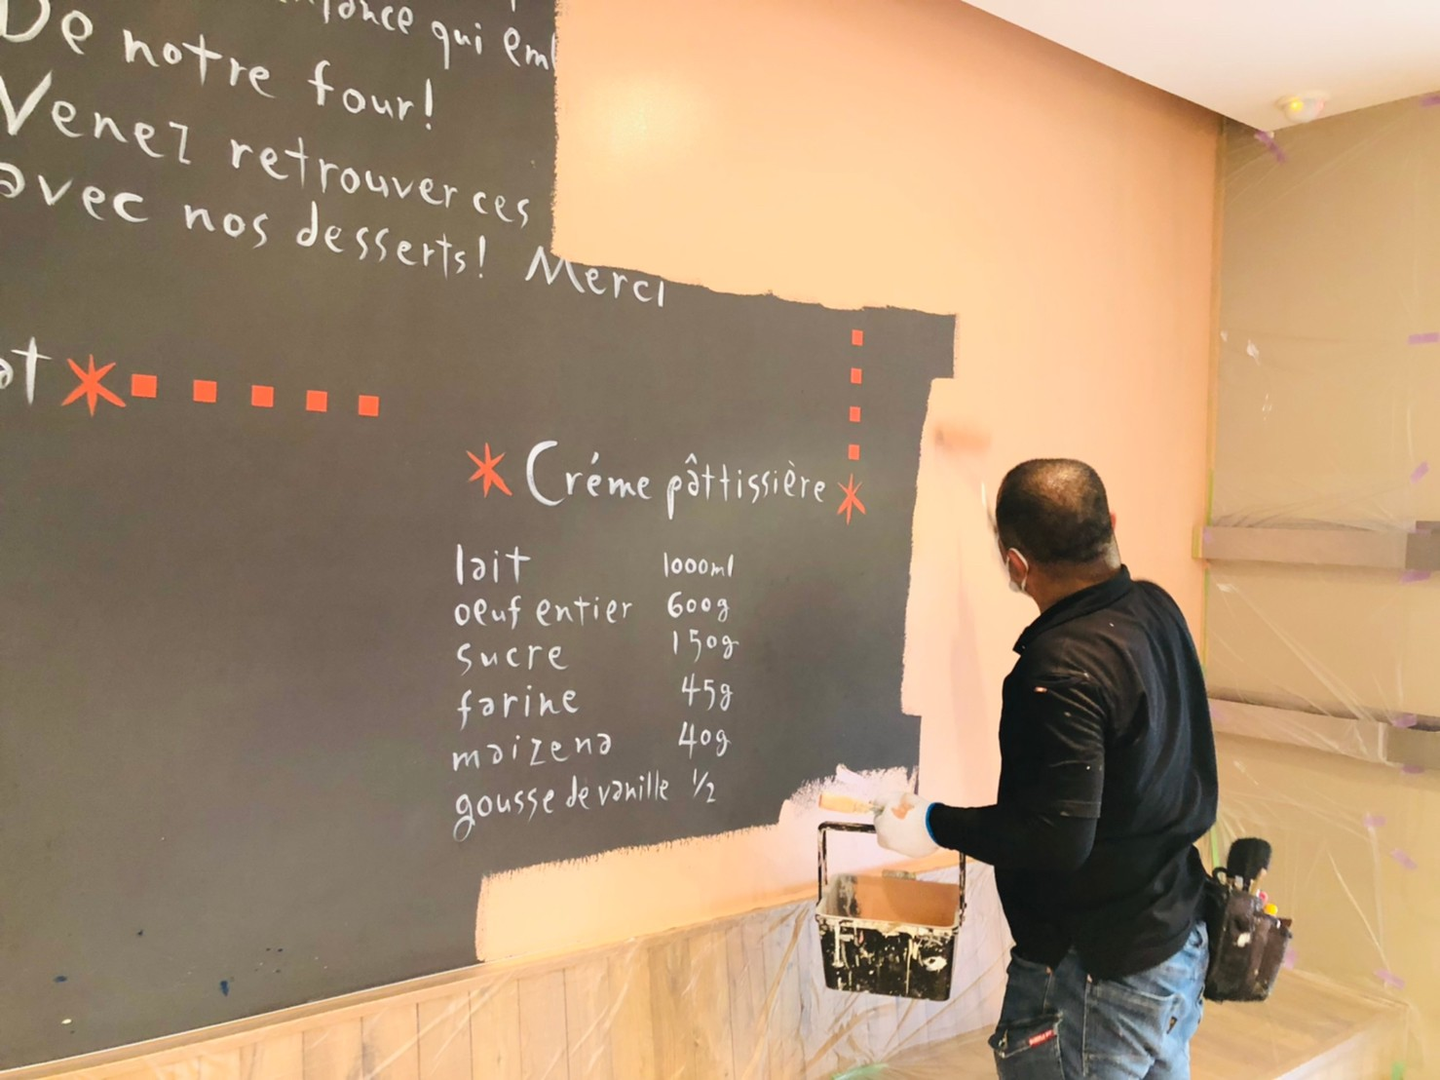 qui
De notre four!
Venez retrouver ces
avec nos desserts! Merci
Créme pâttissière
lait 1000ml
oeuf entier 600g
sucre 150g
farine 45g
maizena 40g
gousse de vanille 1/2